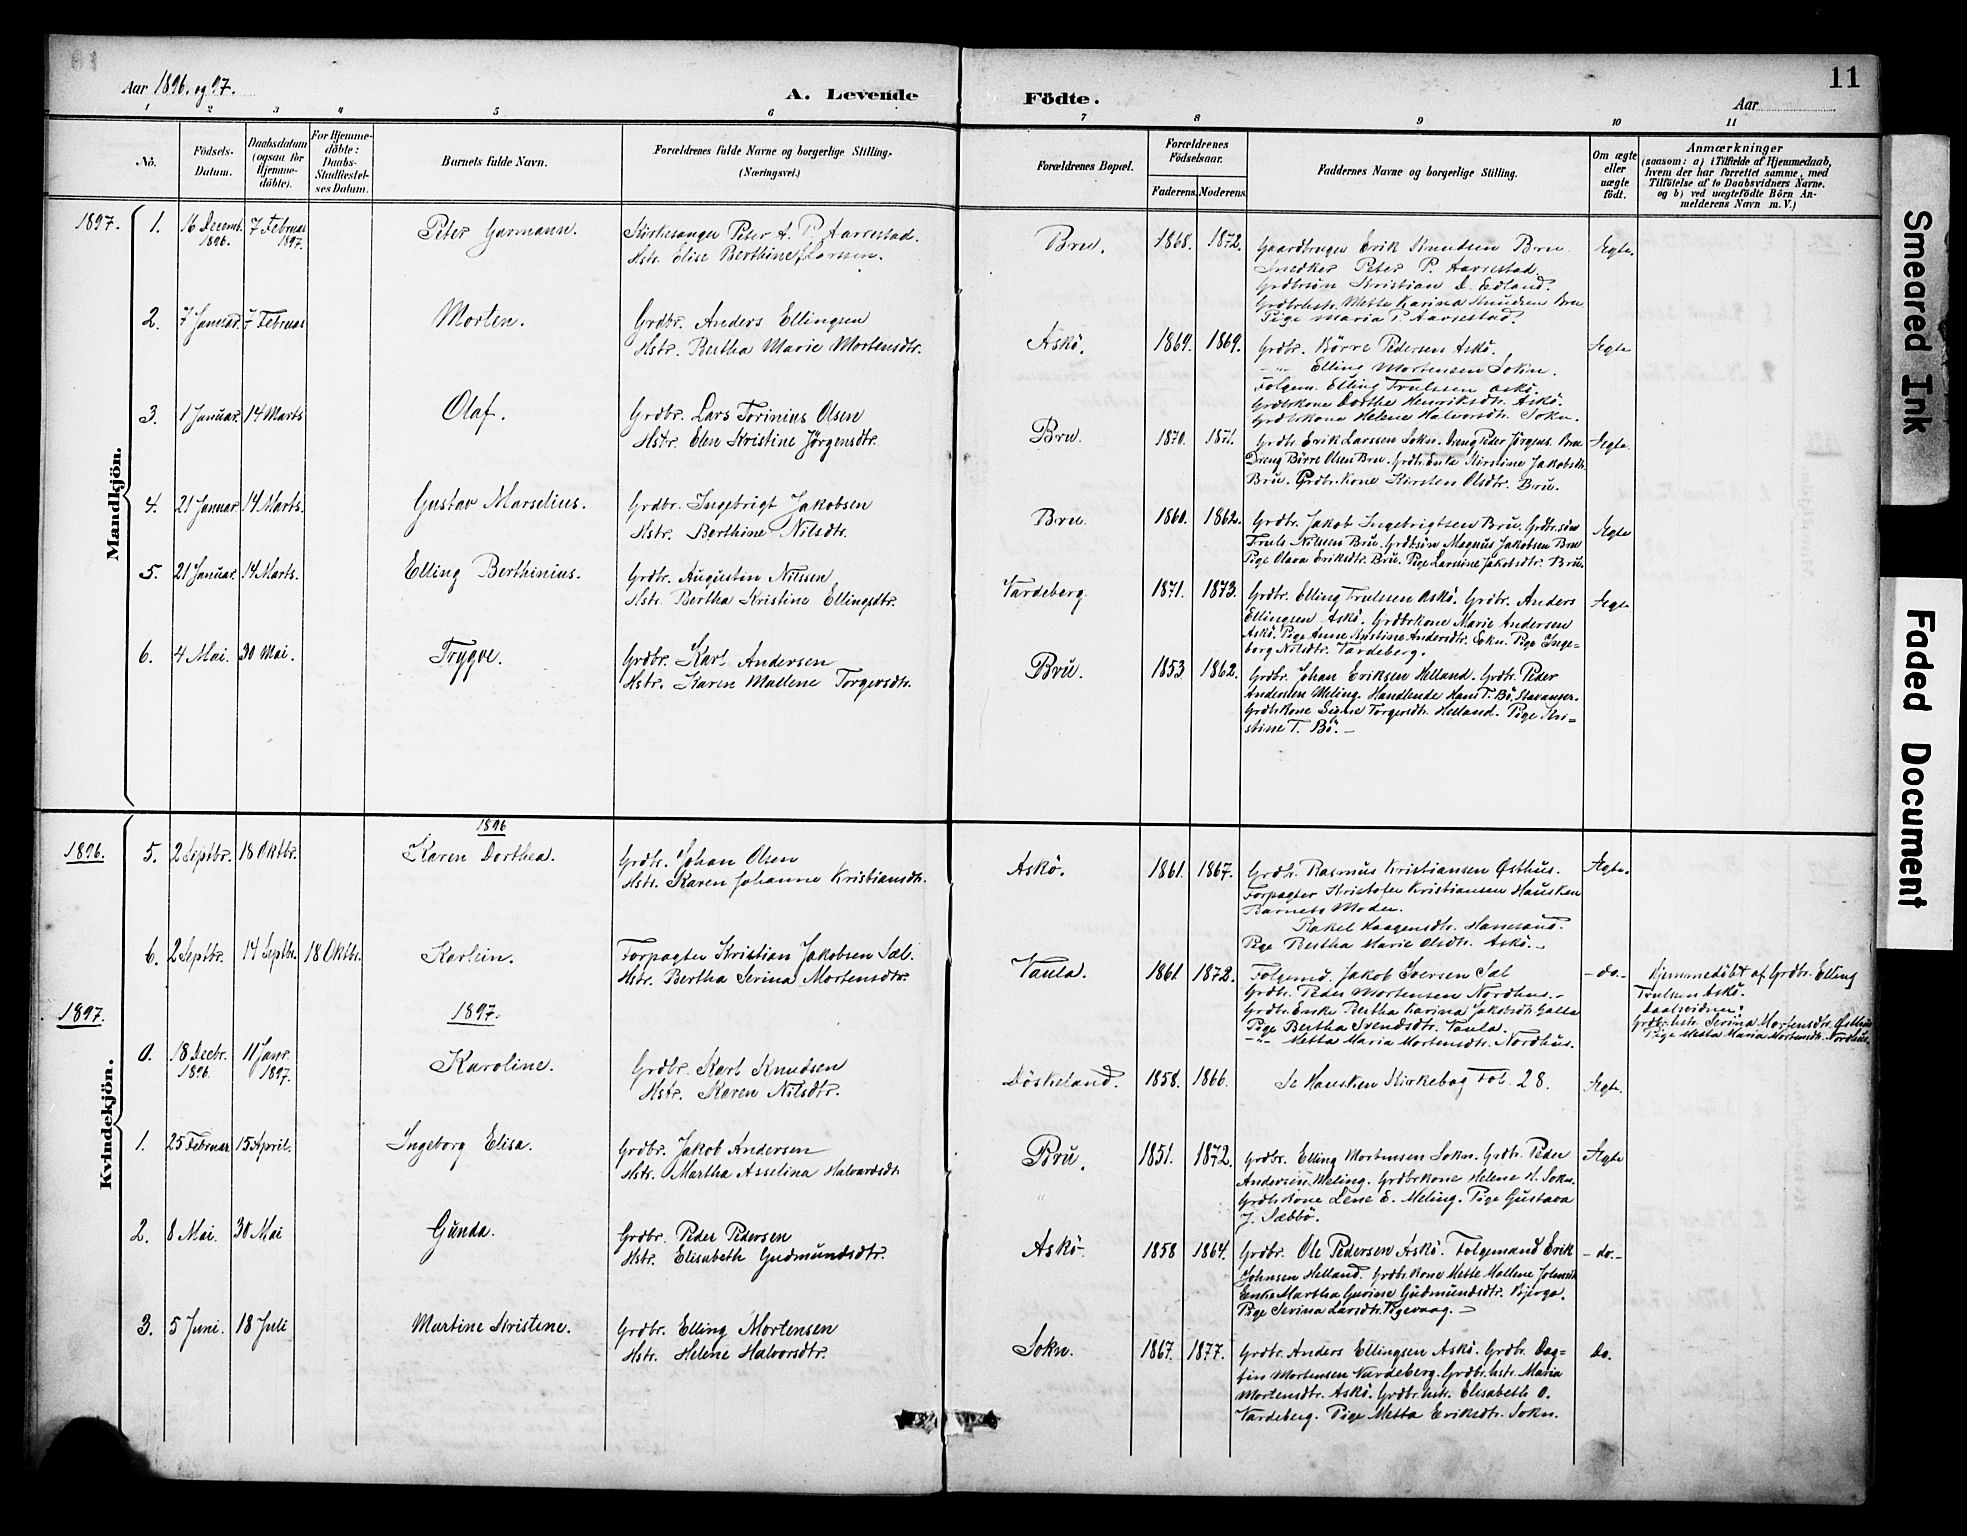 Aar 1896. og 97.
A. Levende Födte.
Aar
11
1 2 3 4 5 6 7 8 9 10 11
No.
Födsels-Datum.
Daabsdatum (ogsaa for Hjemme-döbte).
For Hjemme-döbte: Daabs-Stadfæstel-ses Datum.
Barnets fulde Navn.
Forældrenes fulde Navne og borgerlige Stilling.
(Næringsvei.)
Forældrenes Bopæl.
Forældrenes Födselsaar.
Faderens. Moderens.
Faddernes Navne og borgerlige Stilling.
Om ægte eller uægte födt.
Anmærkninger
(saasom: a) i Tilfælde af Hjemmedaab,
hvem der har forrettet samme, med
Tilföielse af to Daabsvidners Navne,
og b) ved uægtefödte Börn An-
melderens Navn m. V.)
Mandkjön.
1897. 1. 16 Decemb. 1896. 7 Februar 1897. Peter Garmann. Kirkesanger Peter A. P. Aarrestad.
Hstr. Elise Berthine f. Larsen.
Bru. 1868. 1872. Gaardbruger Erik Knudsen Bru. Ægte.
Snedker Peter P. Aarrestad.
Grdbrsön Kristian D. Edland.
Grdbrhstr. Mette Karina Knudsen Bru
Pige Maria P. Aarrestad.
2. 7 Januar. 7 Februar Morten. Grdbr. Anders Ellingsen
Hstr. Bertha Marie Mortensdtr.
Askö. 1869. 1869. Grdbr. Börre Pedersen Askö. Ægte
- " - Elling Mortensen Sokn.
Folgem. Elling Trulssen Askö.
Grdbrkone Dorthe Henriksdtr. Askö.
Grdbrkone Helene Halvorsdtr. Sokn.
3. 1 Januar. 14 Marts Olaf. Grdbr. Lars Torinius Olsen
Hstr. Elen Kristine Jörgensdtr.
Bru. 1870. 1871. Grdbr. Erik Larssen Sokn. Dreng Peder Jörgens. Bru Ægte.
Dreng Börre Olsen Bru. Grdbr. Enke Kirstine Jakobsdtr.
Bru. Grdbr. Kone Kirsten Olsdtr. Bru.
4. 21 Januar 14 Marts. Gustav Marselius. Grdbr. Ingebrigt Jakobsen
Hstr. Berthine Nilsdtr.
Bru. 1860. 1862. Grdbr. Jakob Ingebrigtsen Bru. Grdbr. sön Ægte
Truls Nilssen Bru. Grdbrsön Magnus Jakobsen Bru
Pige Olava Eriksdtr. Bru. Pige Larsine Jakobsdtr. Bru.
5. 21 Januar. 14 Marts. Elling Berthinius. Grdbr. Augustin Nilssen
Hstr. Bertha Kristine Ellingsdtr.
Vardeberg 1871. 1873. Grdbr. Elling Trulssen Askö. Grdbr. Anders Ægte
Ellingsen Askö. Grdbrkone Marie Andersen
Askö. Pige Anne Kristine Andersdtr. Sokn. Pige Inge-
borg Nilsdtr. Vardeberg.
6. 4 Mai. 30 Mai. Trygve. Grdbr. Karl Andersen
Hstr. Karen Mallene Torgersdtr.
Bru. 1853 1862. Grdbr. Johan Eriksen Helland. Grdbr. Peder
Andersen Meling. Handlende Hans T. Bö, Stavanger.
Grdbrkone Signe Torgersdtr. Helland. Pige Kri-
stine T. Bö. -
Kvindekjön.
1896
1896. 5. 2 Septbr. 18 Oktbr. Karen Dorthea. Grdbr. Johan Olsen
Hstr. Karen Johanne Kristiansdtr.
Askö. 1861. 1867. Grdbr. Rasmus Kristiansen Østhus. Ægte.
Forpagter Kristofer Kristiansen Hausken
Barnets Moder.
Rakel Haagensdtr. Hanasand.
Pige Bertha Marie Olsdtr. Askö. -
6. 2 Septbr. 14 Septbr. 18 Oktbr. Karlein. Forpagter Kristian Jakobsen Sæl.
Hstr. Bertha Serina Mortensdtr.
Vaula. 1861 1872. Folgemd. Jakob Iversen Sæl - do. -
Grdbr. Peder Mortensen Nordhus. -
Grdbr. Enke Bertha Karina Jakobsdtr. Galta
Pige Bertha Svendsdtr. Vaula.
- " - Metta Maria Mortensdtr. Nordhus.
Hjemmedöbt af Grdbr. Elling
Trulsen Askö.
Daabsvidner:
Grdbr. hstr. Serina Mortensdtr. Østhus
Pige Metta Maria Mortensdtr. Nordhus.
1897. 1897.
0. 18 Decbr. 1896. 11 Janr. 1897. Karoline. Grdbr. Karl Knudsen
Hstr. Karen Nilsdtr.
Döskeland. 1858. 1866. Se Hausken Kirkebog Fol. 28. Ægte.
1. 25 Februar 15 April. Ingeborg Elisa. Grdbr. Jakob Andersen
Hstr. Martha Asselina Halvorsdtr.
Bru. 1851. 1872. Grdbr. Elling Mortensen Sokn. Grdbr. Peder Ægte
Andersen Meling. Grdbrkone Helene H. Sokn.
Grdbrkone Lene E. Meling. Pige Gustava
J. Sæbbö.
2. 8 Mai. 30 Mai Gunda. Grdbr. Peder Pedersen
Hstr. Elisabeth Gudmundsdtr.
Askö. 1858 1864. Grdbr. Ole Pedersen Askö. Folgemand Erik - do. -
Johnsen Helland. Grdbrkone Mette Mallene
Enke Martha Gurine Gudmundsdtr. Bjerga.
Pige Serina Larsdtr. Vigevaag. -
3. 5 Juni. 18 Juli Martine Kristine. Grdbr. Elling Mortensen
Hstr. Helene Halvorsdtr.
Sokn. 1867. 1877. Grdbr. Anders Ellingsen Askö. Grdbr. Dag- do.
fin Mortensen Vardeberg. Grdbr. hstr. Maria
Mortensdtr. Askö. Grdbr. hstr. Elisabeth O.
Vardeberg. Pige Metta Eriksdtr. Sokn.
Smeared Ink
Faded Document